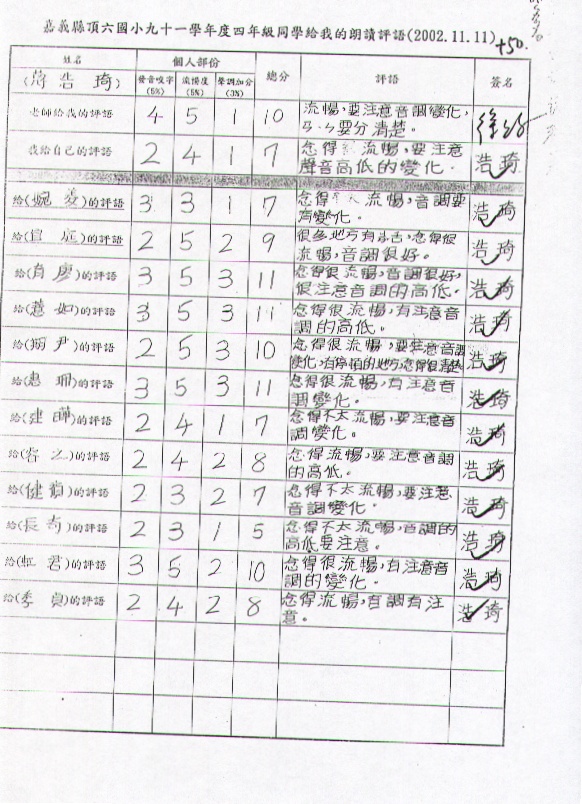 嘉義縣頂六國小九十一學年度四年級同學給我的朗讀評語(2002.11.11)
+50.
姓名 個人部份 總分 評語 簽名
(蔣浩琦) 發音咬字(5%) 流暢度(5%) 聲調加分(3%)
老師給我的評語 4 5 1 10 流暢,要注意音調變化,
ㄢ、ㄣ要分清楚。
我給自己的評語 2 4 1 7 念得 流暢,要注意 浩琦
聲音高低的變化。
給(婉菱)的評語 3 3 1 7 念得 流暢,音調要 浩琦
有變化。
給( 庭)的評語 2 5 2 9 很多地方有 舌,念得很 浩琦
流暢,音調很好。
給(貞廖)的評語 3 5 3 11 念得很流暢,音調很好, 浩琦
很注意音調的高低。
給(蕙如)的評語 3 5 3 11 念得很流暢,有注意音 浩琦
調的高低。
給( 尹)的評語 2 5 3 10 念得很流暢,要注意音調 浩琦
變化,有停頓的地方念得很清楚
給(惠珊)的評語 3 5 3 11 念得很流暢,有注意音 浩琦
調變化。
給(建曄)的評語 2 4 1 7 念得不太流暢,要注意音 浩琦
調變化。
給(容之)的評語 2 4 2 8 念得流暢,要注意音調 浩琦
的高低。
給(健 )的評語 2 3 2 7 念得不太流暢,要注意 浩琦
音調變化。
給(長奇)的評語 2 3 1 5 念得不太流暢,音調的 浩琦
高低要注意。
給(虹君)的評語 3 5 2 10 念得很流暢,有注意音 浩琦
調的變化。
給(季貞)的評語 2 4 2 8 念得流暢,音調有注 浩琦
意。